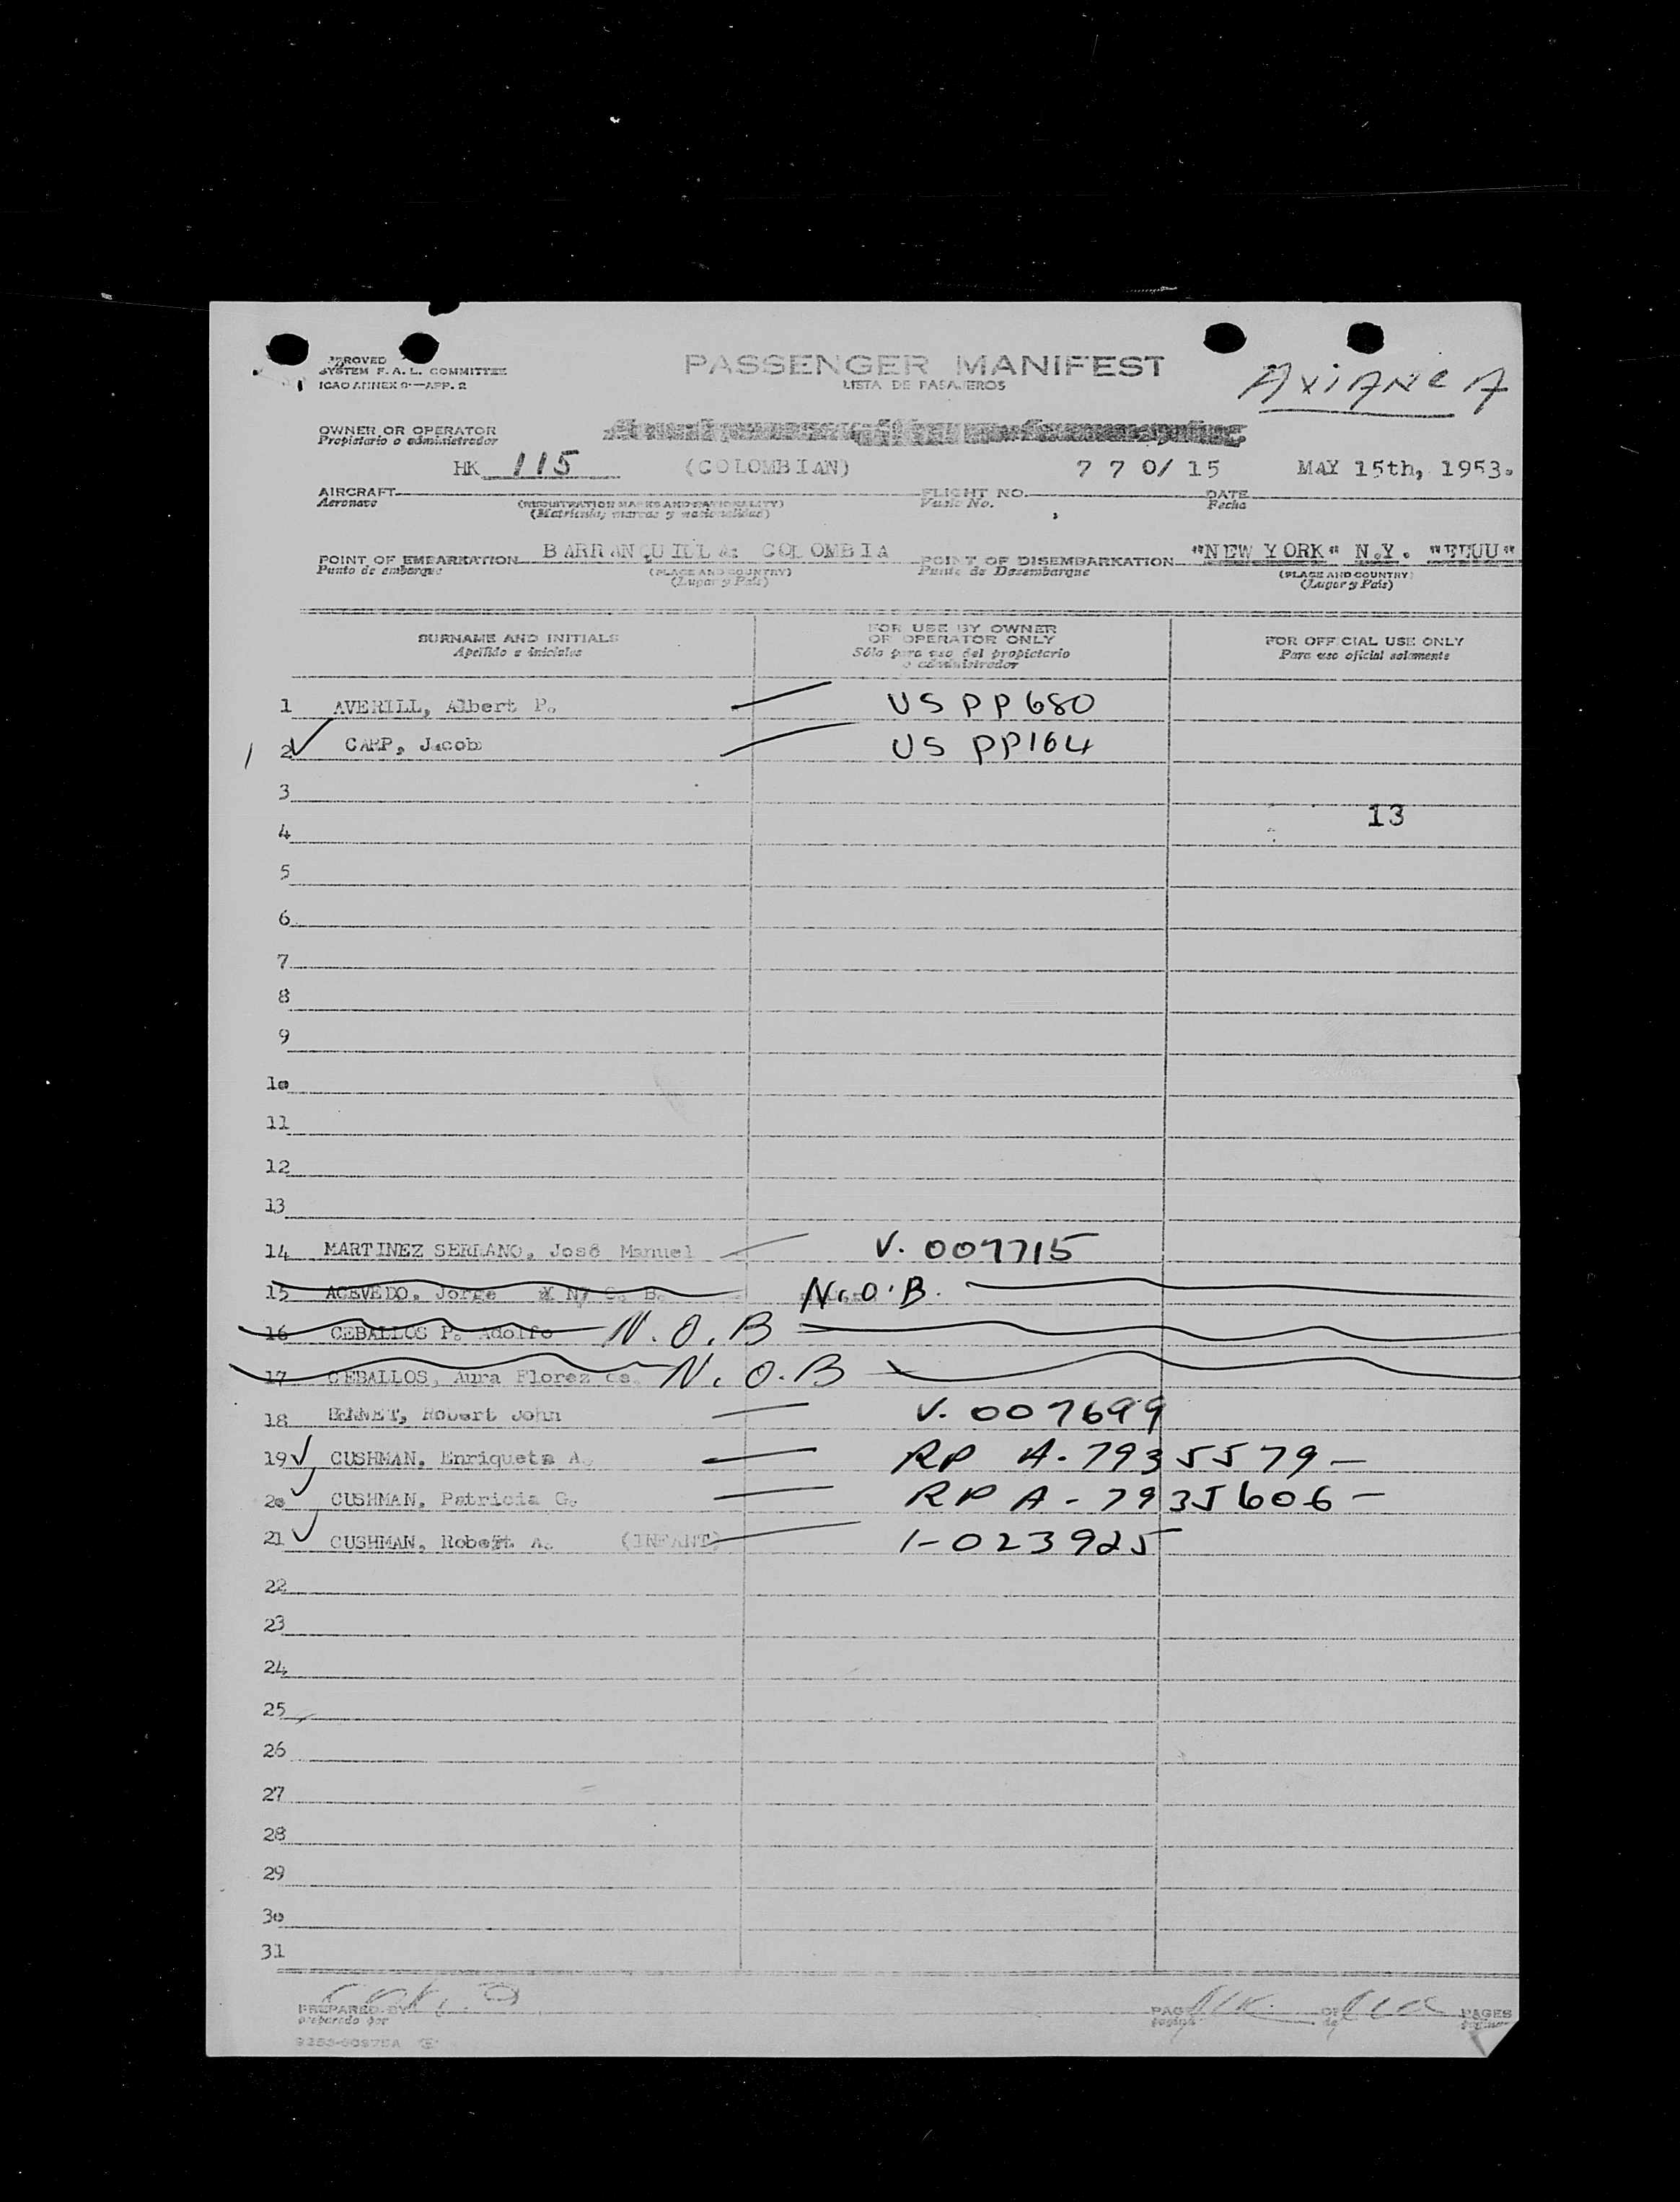 APPROVED
SYSTEM F. A. L. COMMITTEE
ICAO ANNEX 9—APP. 2
PASSENGER MANIFEST
LISTA DE PASAJEROS
AVIANCA
OWNER OR OPERATOR
Propietario o administrador
HK 115 (COLOMBIAN) 7 7 0/ 15 MAY 15th, 1953.
AIRCRAFT FLIGHT NO. DATE
Aeronave (REGISTRATION MARKS AND NATIONALITY) Vuelo No. Fecha
(Matrícula, marcas y nacionalidad)
POINT OF EMBARKATION BARRANQUILLA: COLOMBIA POINT OF DISEMBARKATION "NEW YORK" N.Y. "EEUU"
Punto de embarque (PLACE AND COUNTRY) Punto de Desembarque (PLACE AND COUNTRY)
(Lugar y País) (Lugar y País)
SURNAME AND INITIALS FOR USE BY OWNER FOR OFFICIAL USE ONLY
Apellido e iniciales OR OPERATOR ONLY Para uso oficial solamente
Sólo para uso del propietario
o administrador
1 AVERILL, Albert P. US PP 680
2 CARP, Jacob US PP164
3
13
4
5
6
7
8
9
10
11
12
13
14 MARTINEZ SERRANO, José Manuel V. 007715
15 ACEVEDO, Jorge N.O.B.
16 CEBALLOS P. Adolfo N.O.B
17 CEBALLOS, Aura Florez de N.O.B
18 BENNET, Robert John V. 007699
19 CUSHMAN, Enriqueta A. RP A-7935579-
20 CUSHMAN, Patricia G. RP A-7935606-
21 CUSHMAN, Robert A. (INFANT) 1-023925
22
23
24
25
26
27
28
29
30
31
PREPARED BY PAGE OF PAGES
preparado por página de